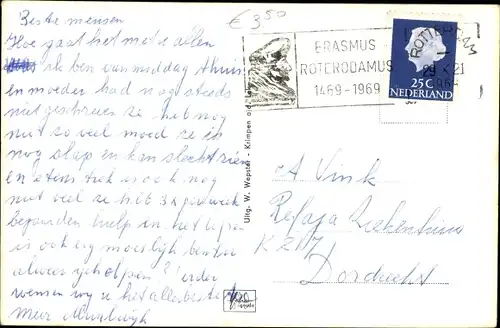 Beste mensen
€ 3,50
Hoe gaat het met allen
ik ben van middag thuis
en moeder had nog steeds
niet geschreven ze heb nog
niet zo veel moed ze is
nog slap en kan slecht zien
en eten trek is ook nog
niet veel ze heb 3 x per week
hulp en het lopen
is ook erg moeilijk ben u
alweer geholpen? verder
wensen wij u het allerbeste
ERASMUS
ROTERODAMUS
1469-1969
ROTTERDAM
25C
NEDERLAND
Uitg. W. Wepster - Krimpen a/d
A Vink
Refaja Ziekenhuis
K 217
Dordrecht